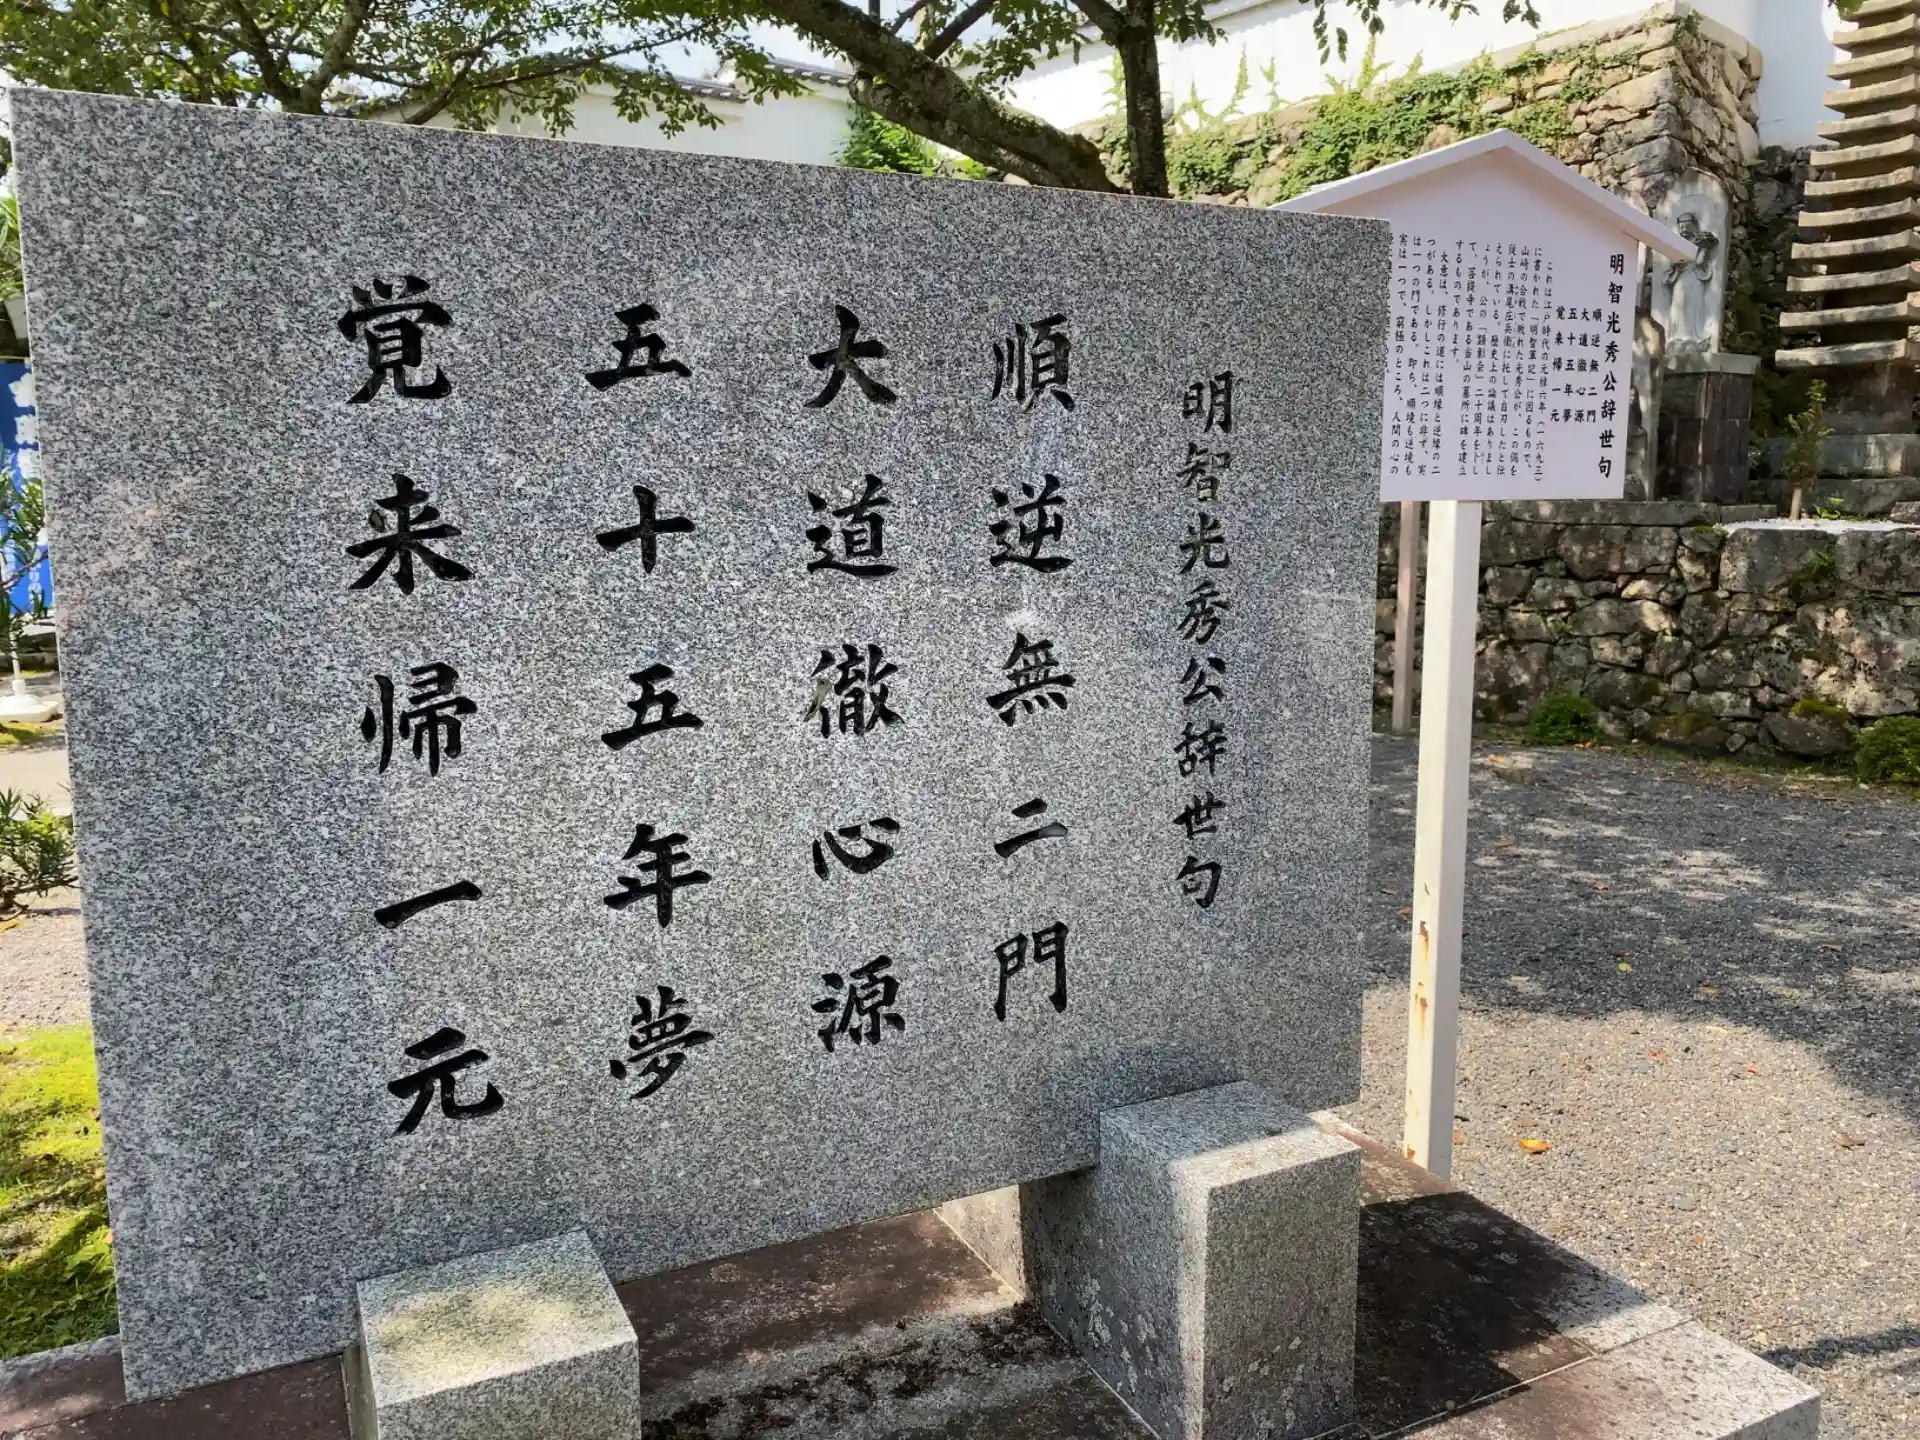 明智光秀公辞世句
順逆無二門
大道徹心源
五十五年夢
覚来帰一元
明智光秀公辞世句
順逆無二門
大道徹心源
五十五年夢
覚来帰一元
これは江戸時代の元禄六年(一六九三)
に書かれた「明智軍記」に因るもので、
山崎の合戦で敗れた光秀公が、この偈を
従士の溝尾庄兵衛に托して自刃したと伝
えられている。歴史上の論議はありまし
ょうが、公の「顕彰会」二十周年を卜し
て、菩提寺である当山の墓所に碑を建立
するものであります。
大意は、修行の道には順縁と逆縁の二
つがある。しかしこれは二つに非ず、実
は一つの門である。即ち、順境も逆境も
実は一つで、窮極のところ、人間の心の